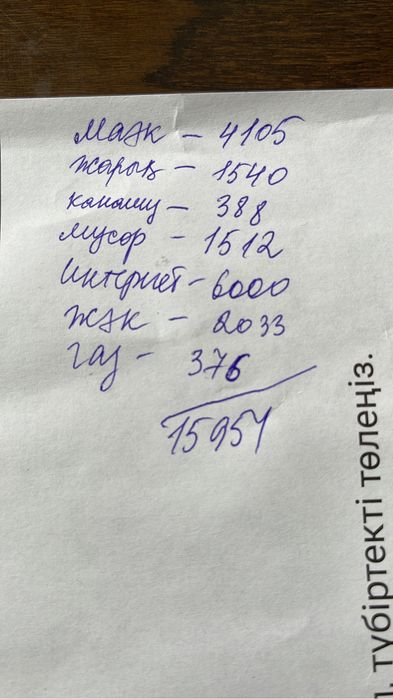 МАЭК – 4105
жарық – 1540
– 388
мусор – 1512
Интернет – 6000
ЖЭК – 2033
газ – 376
15954
түбіртекті төлеңіз.